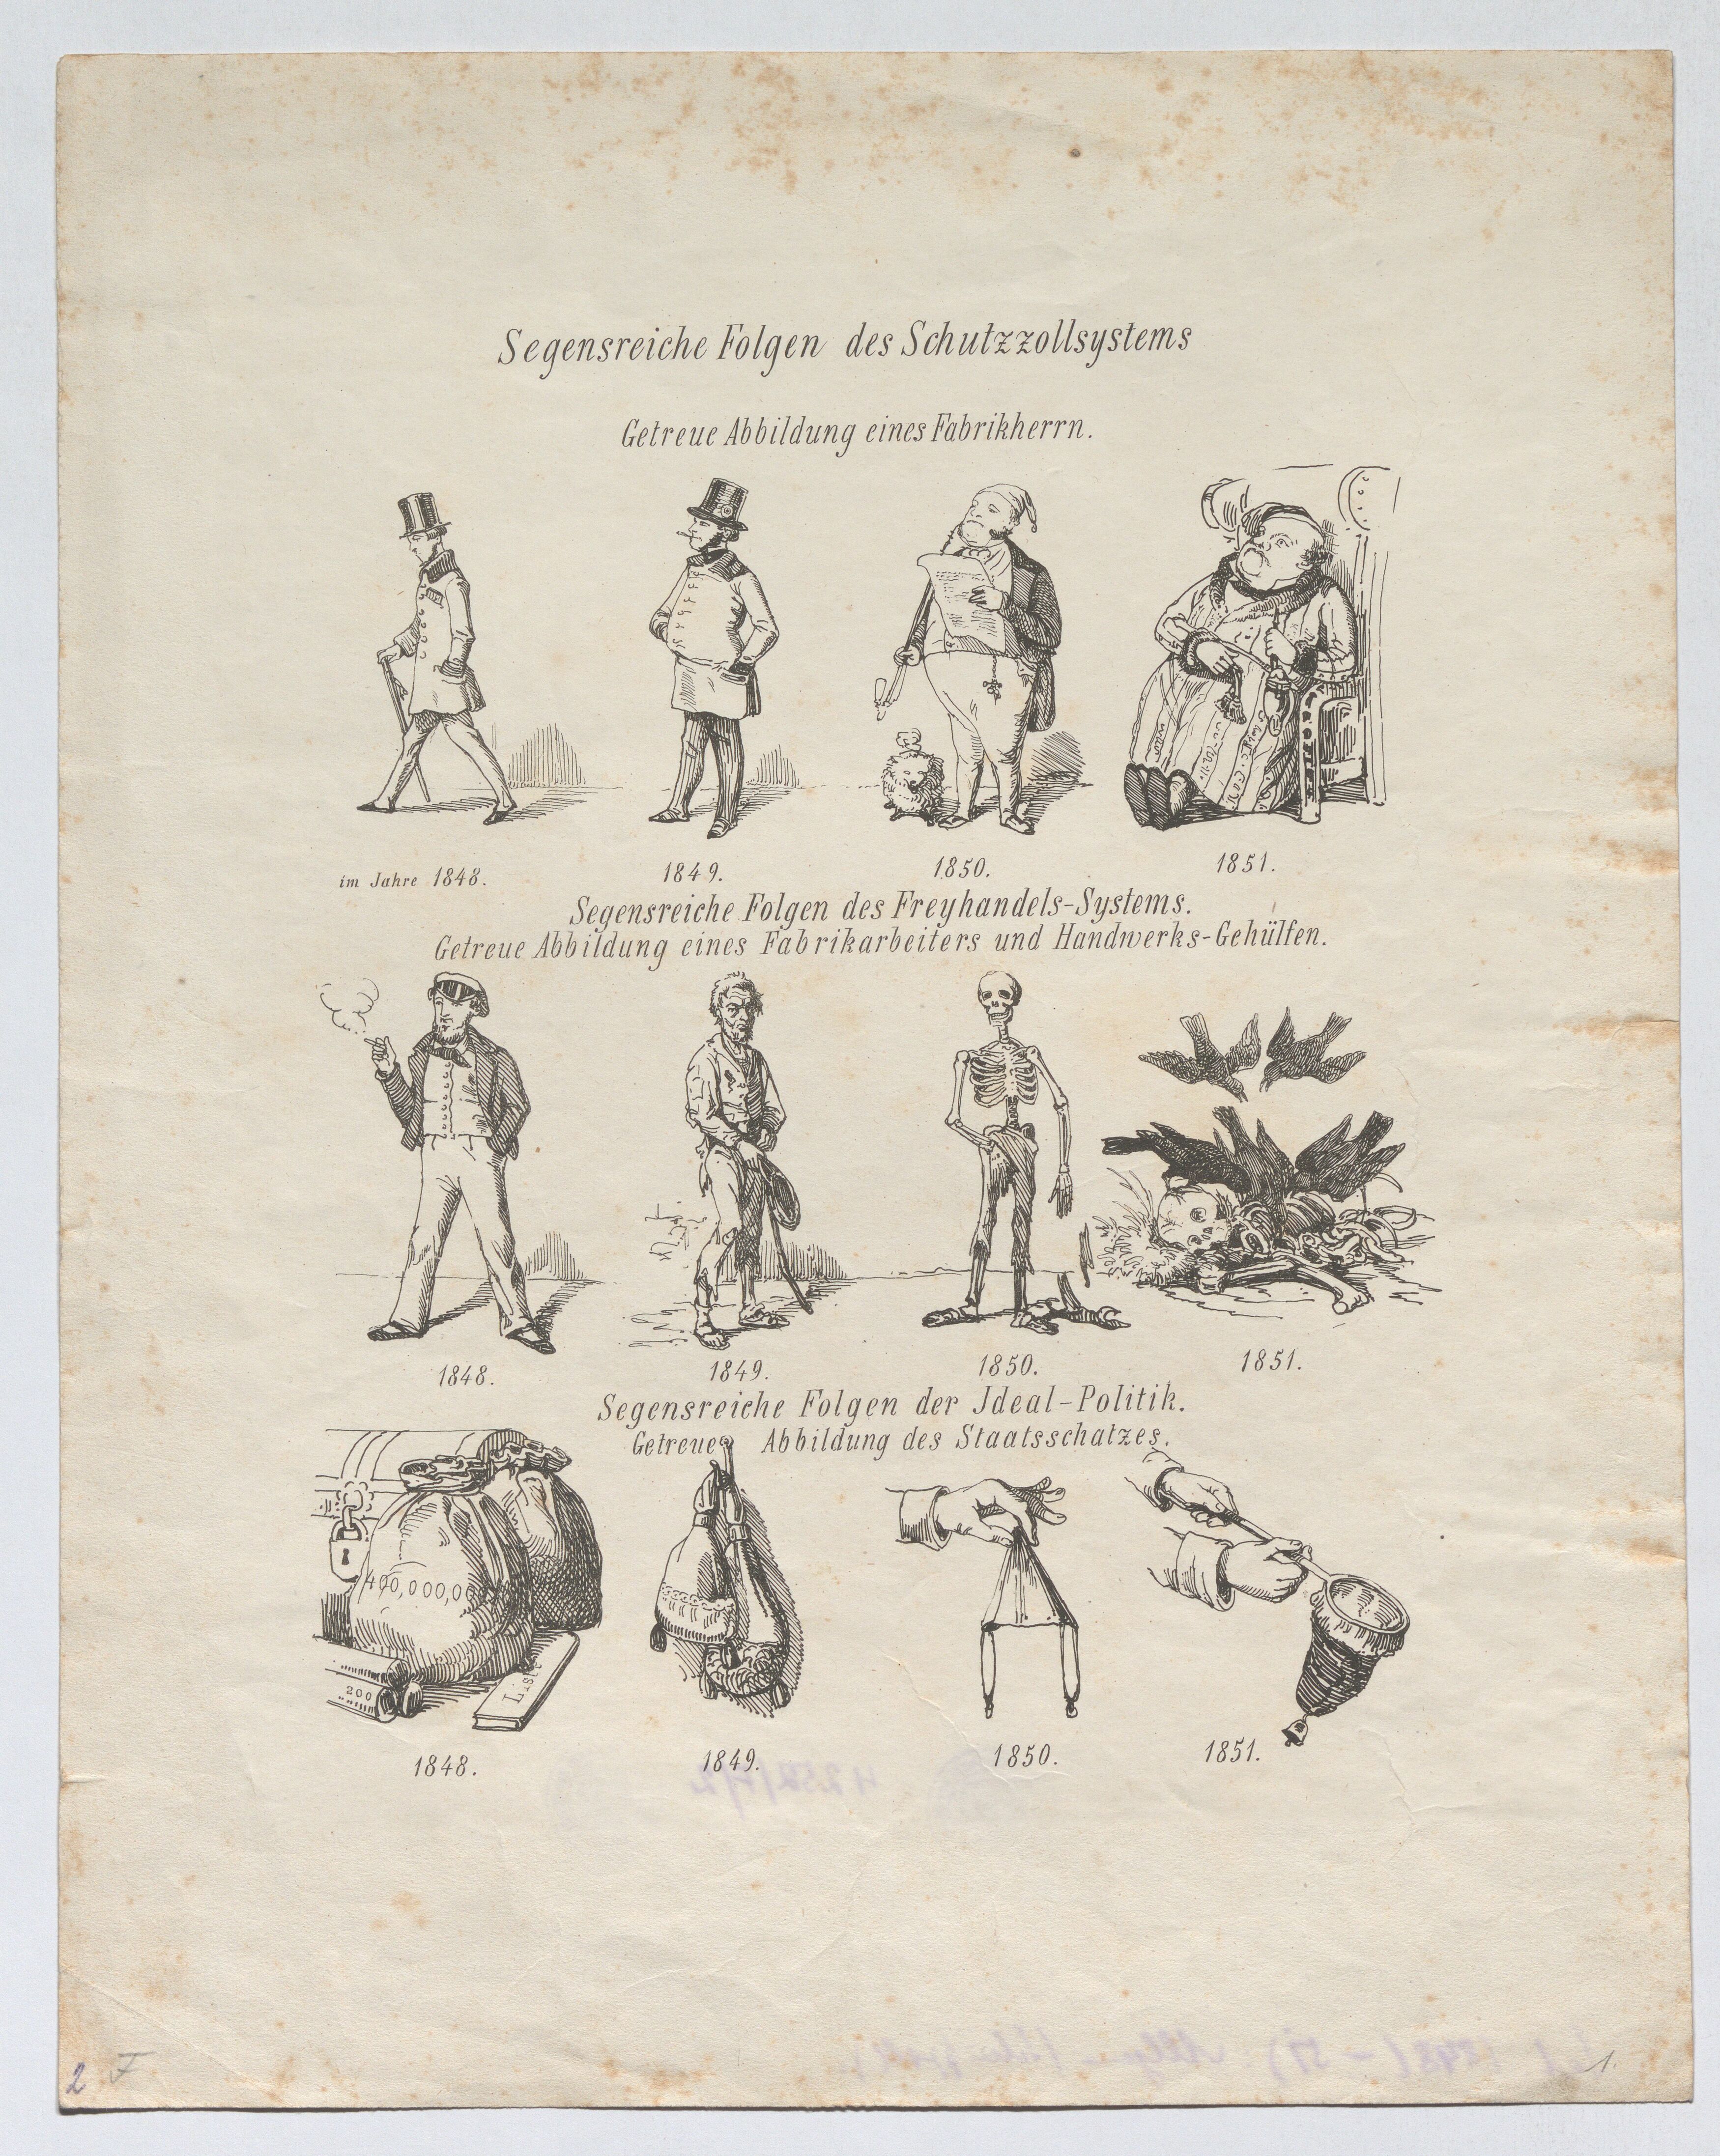 Segensreiche Folgen des Schutzzollsystems
Getreue Abbildung eines Fabrikherrn.
im Jahre 1848. 1849. 1850. 1851.
Segensreiche Folgen des Freyhandels-Systems.
Getreue Abbildung eines Fabrikarbeiters und Handwerks-Gehülfen.
1848. 1849. 1850. 1851.
Segensreiche Folgen der Jdeal-Politik.
Getreue Abbildung des Staatsschatzes.
400,000,0
200
List
1848. 1849. 1850. 1851.
2 F
1.